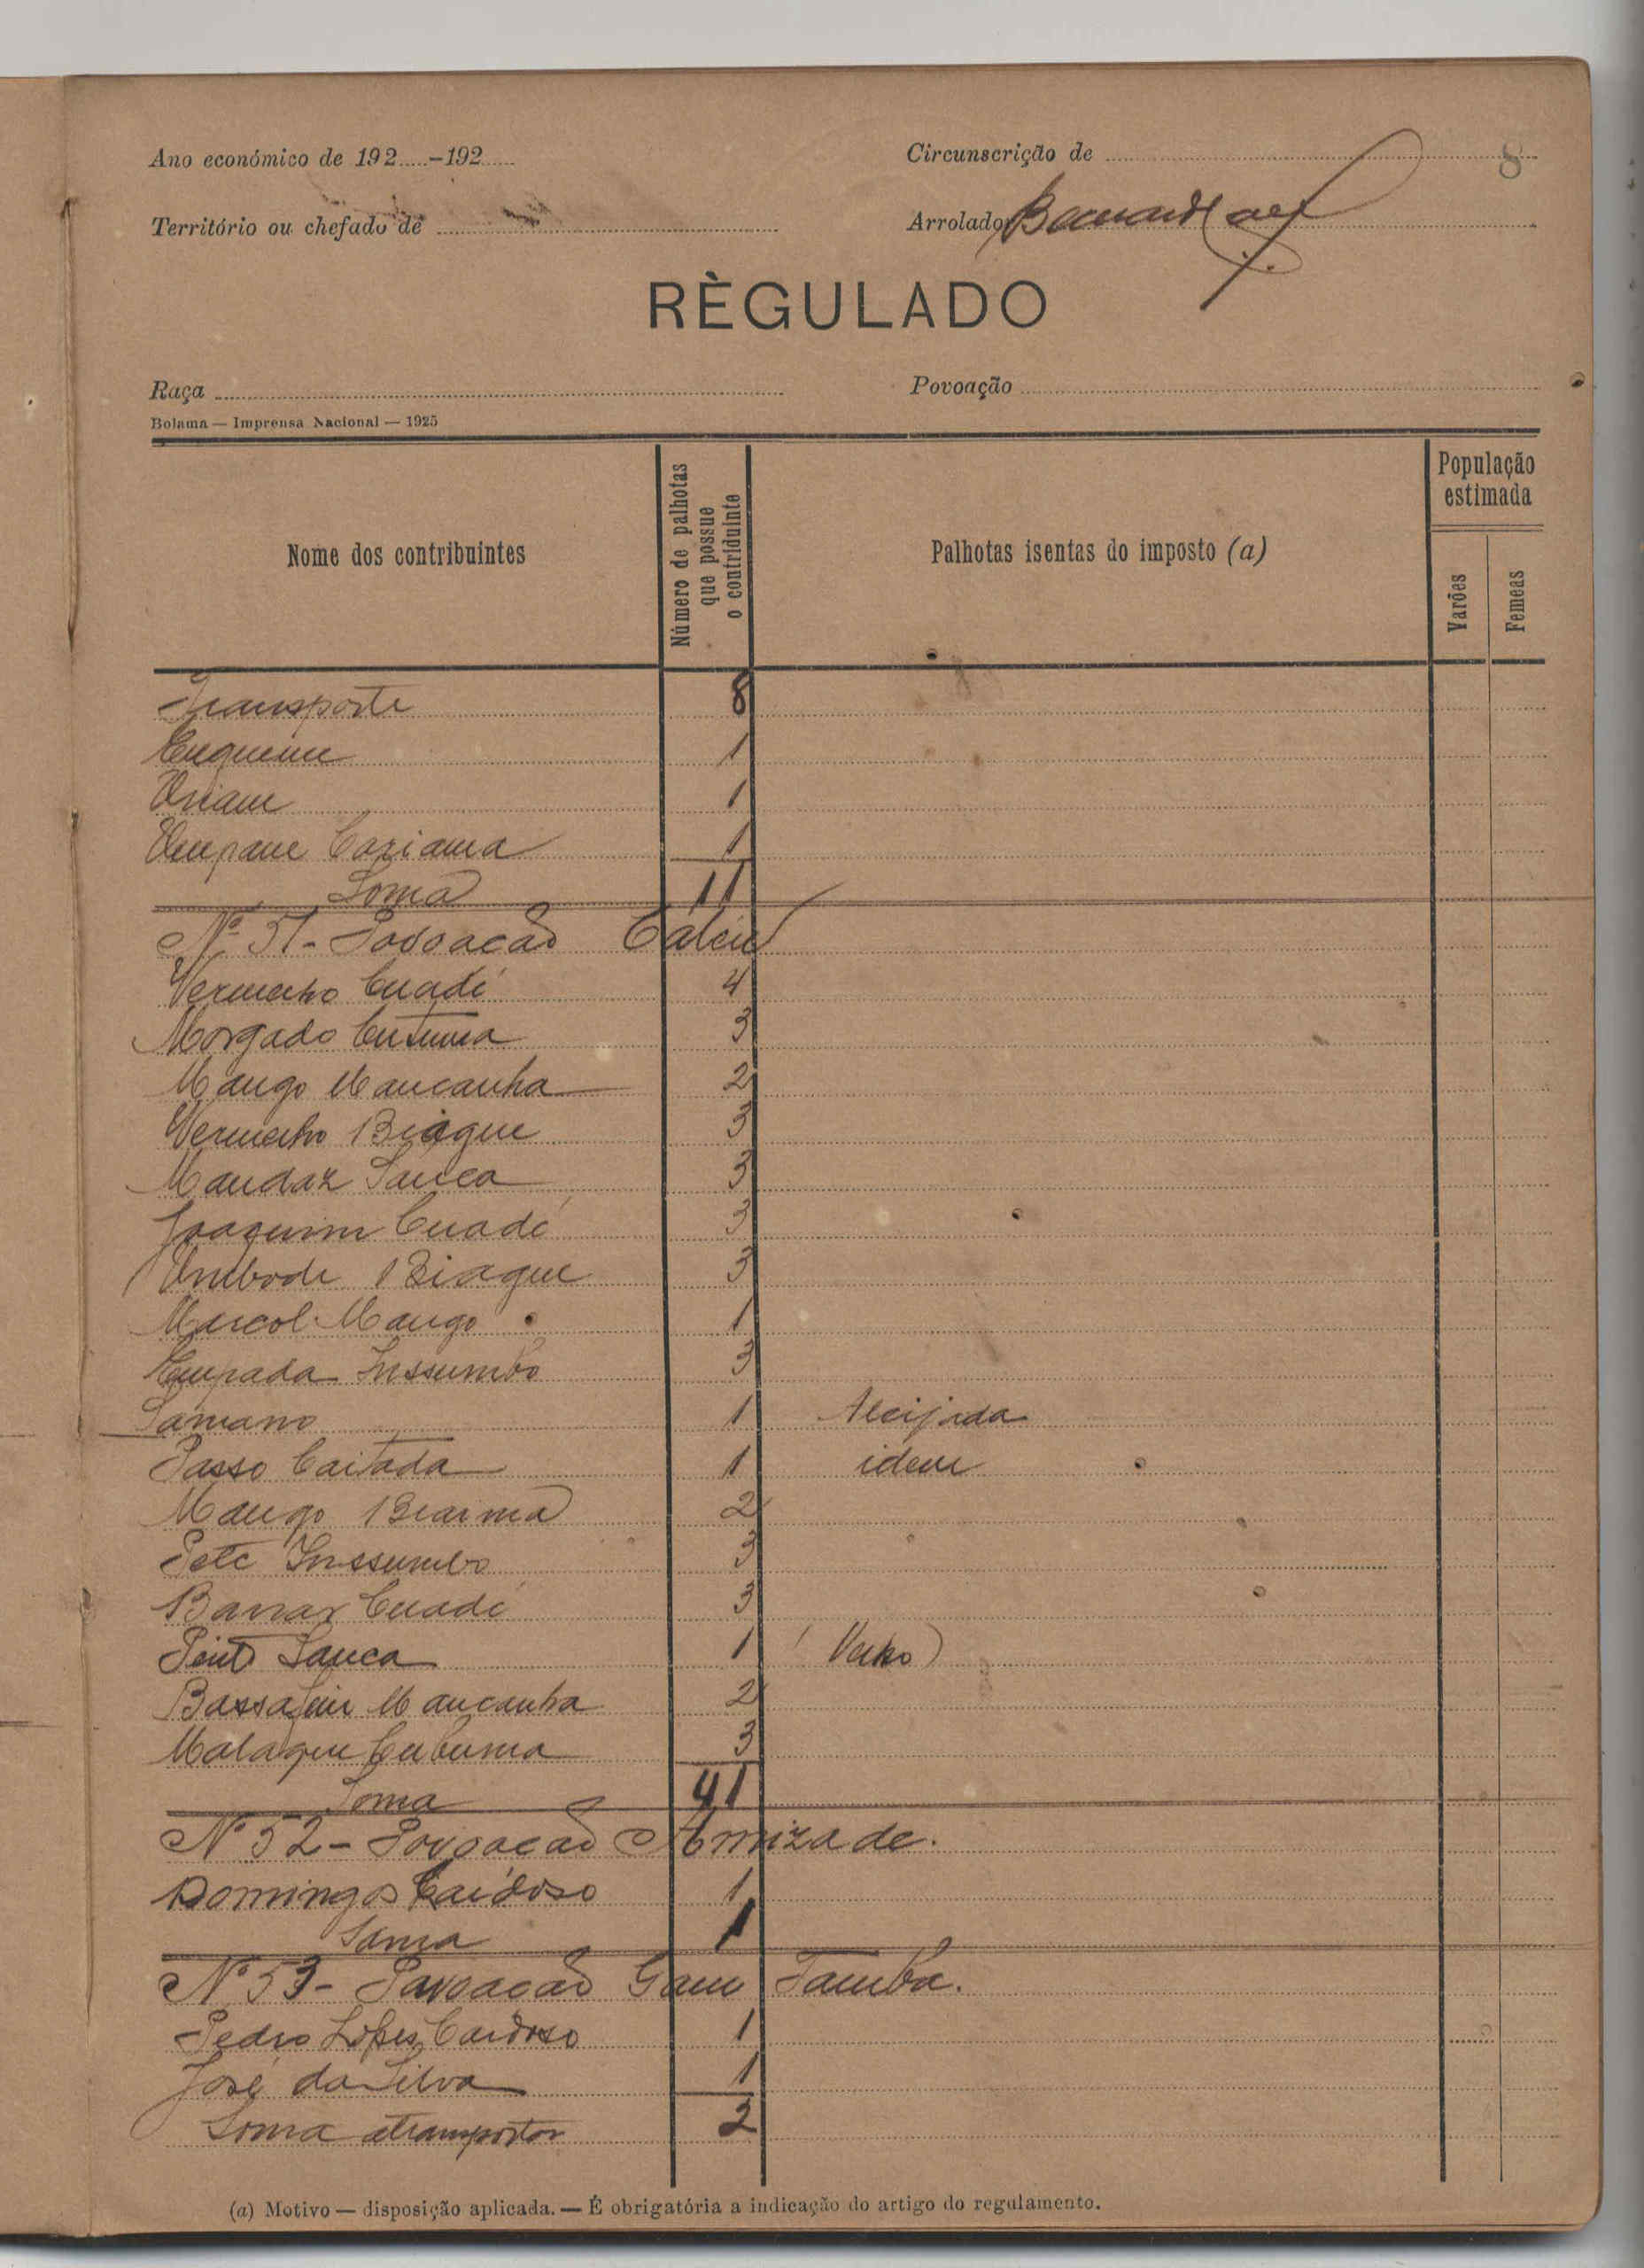 8
Ano económico de 192.....-192.....
Circunscrição de
Território ou chefado de
Arrolador
RÈGULADO
Raça
Povoação
Bolama — Imprensa Nacional — 1925
Nome dos contribuintes
Número de palhotas que possue o contriduinte
Palhotas isentas do imposto (a)
População estimada
Varões
Femeas
Transporte 8
1
1
Caziama 1
Soma 11
Nº 51 - Povoacão
Vermelho Cuadé 4
Morgado 3
Mango Mancanha 2
Vermelho Biague 3
Mandaz Sanca 3
Joaquim Cuadé 3
Biague 3
Mango 1
Empada Inssumbo 3
Samano 1 Aleijada
Passo Caitada 1 idem
Mango Braima 2
Inssumbo 3
Cuadé 3
Pinto Sanca 1 (Velho)
Mancanha 2
Malaque 3
Soma 41
Nº 52 - Povoacão Amizade.
Domingos Cardoso 1
Soma 1
Nº 53 - Povoacão Gam Tamba.
Pedro Lopes Cardoso 1
José da Silva 1
Soma atransportar 2
(a) Motivo — disposição aplicada. — É obrigatória a indicação do artigo do regulamento.